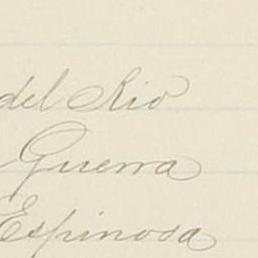 del Rio
Guerra
Espinosa